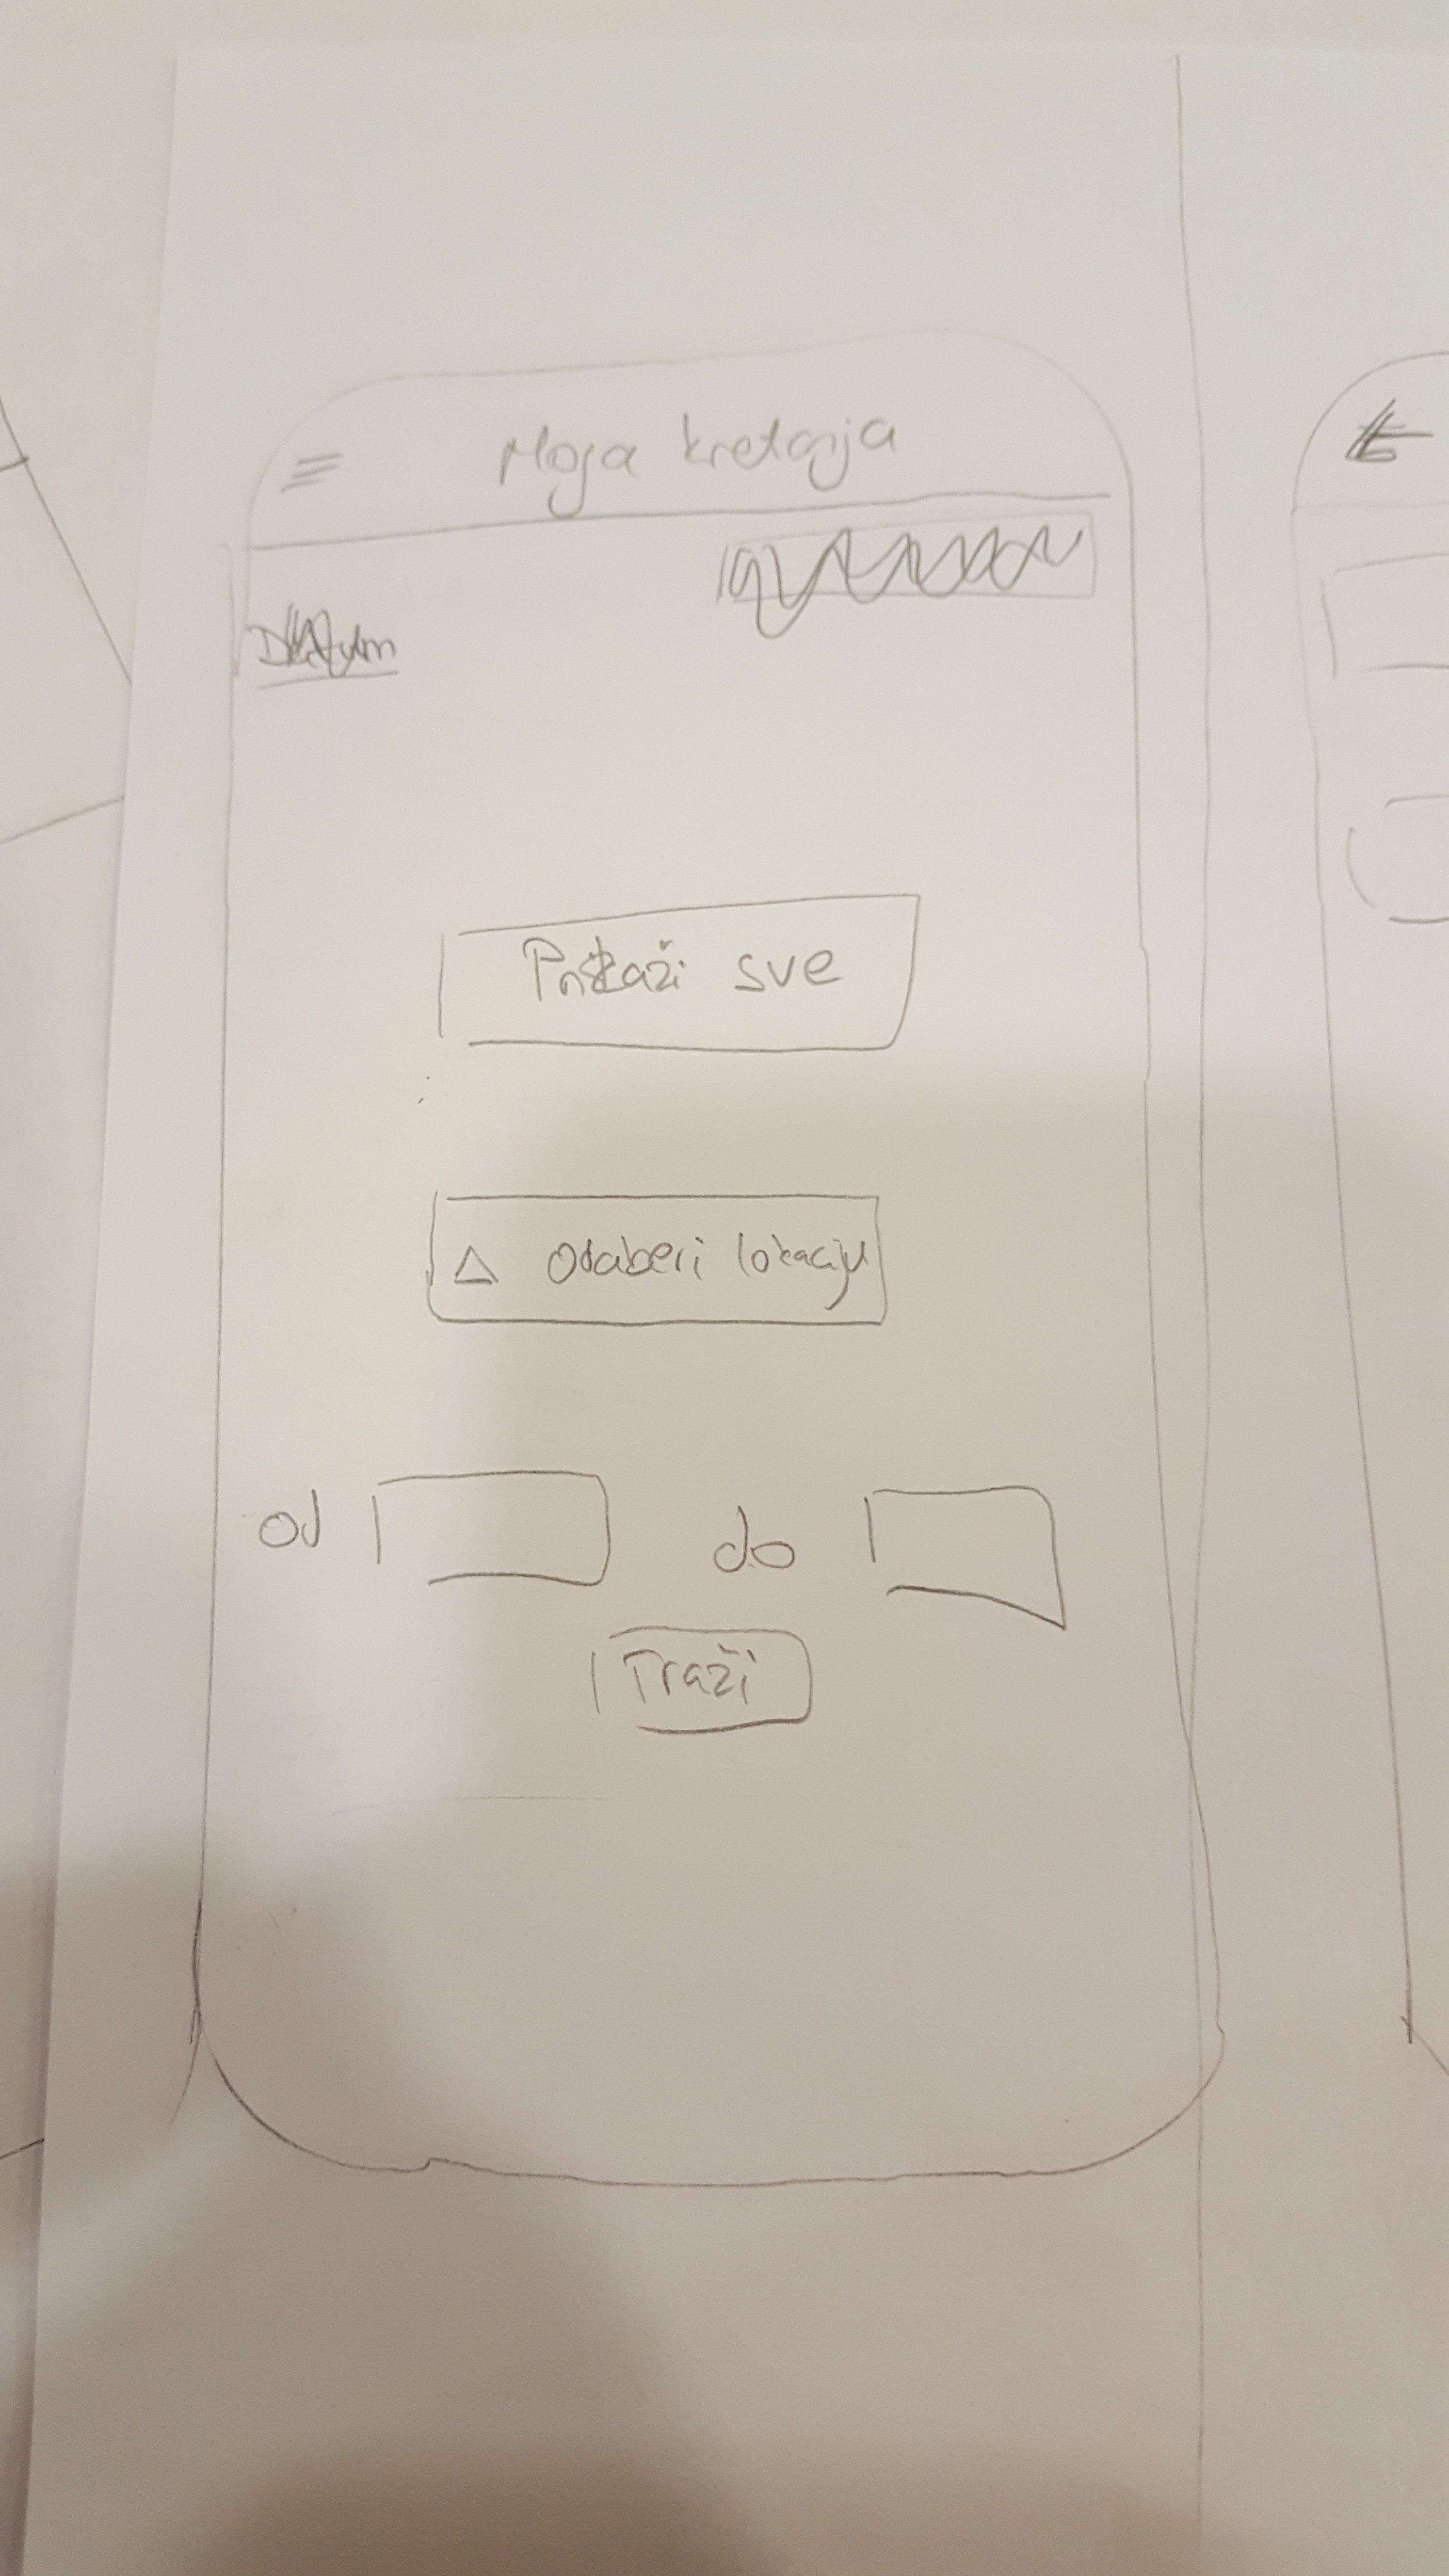 Moja kretanja
Datum
Prikaži sve
Odaberi lokaciju
od do
Traži